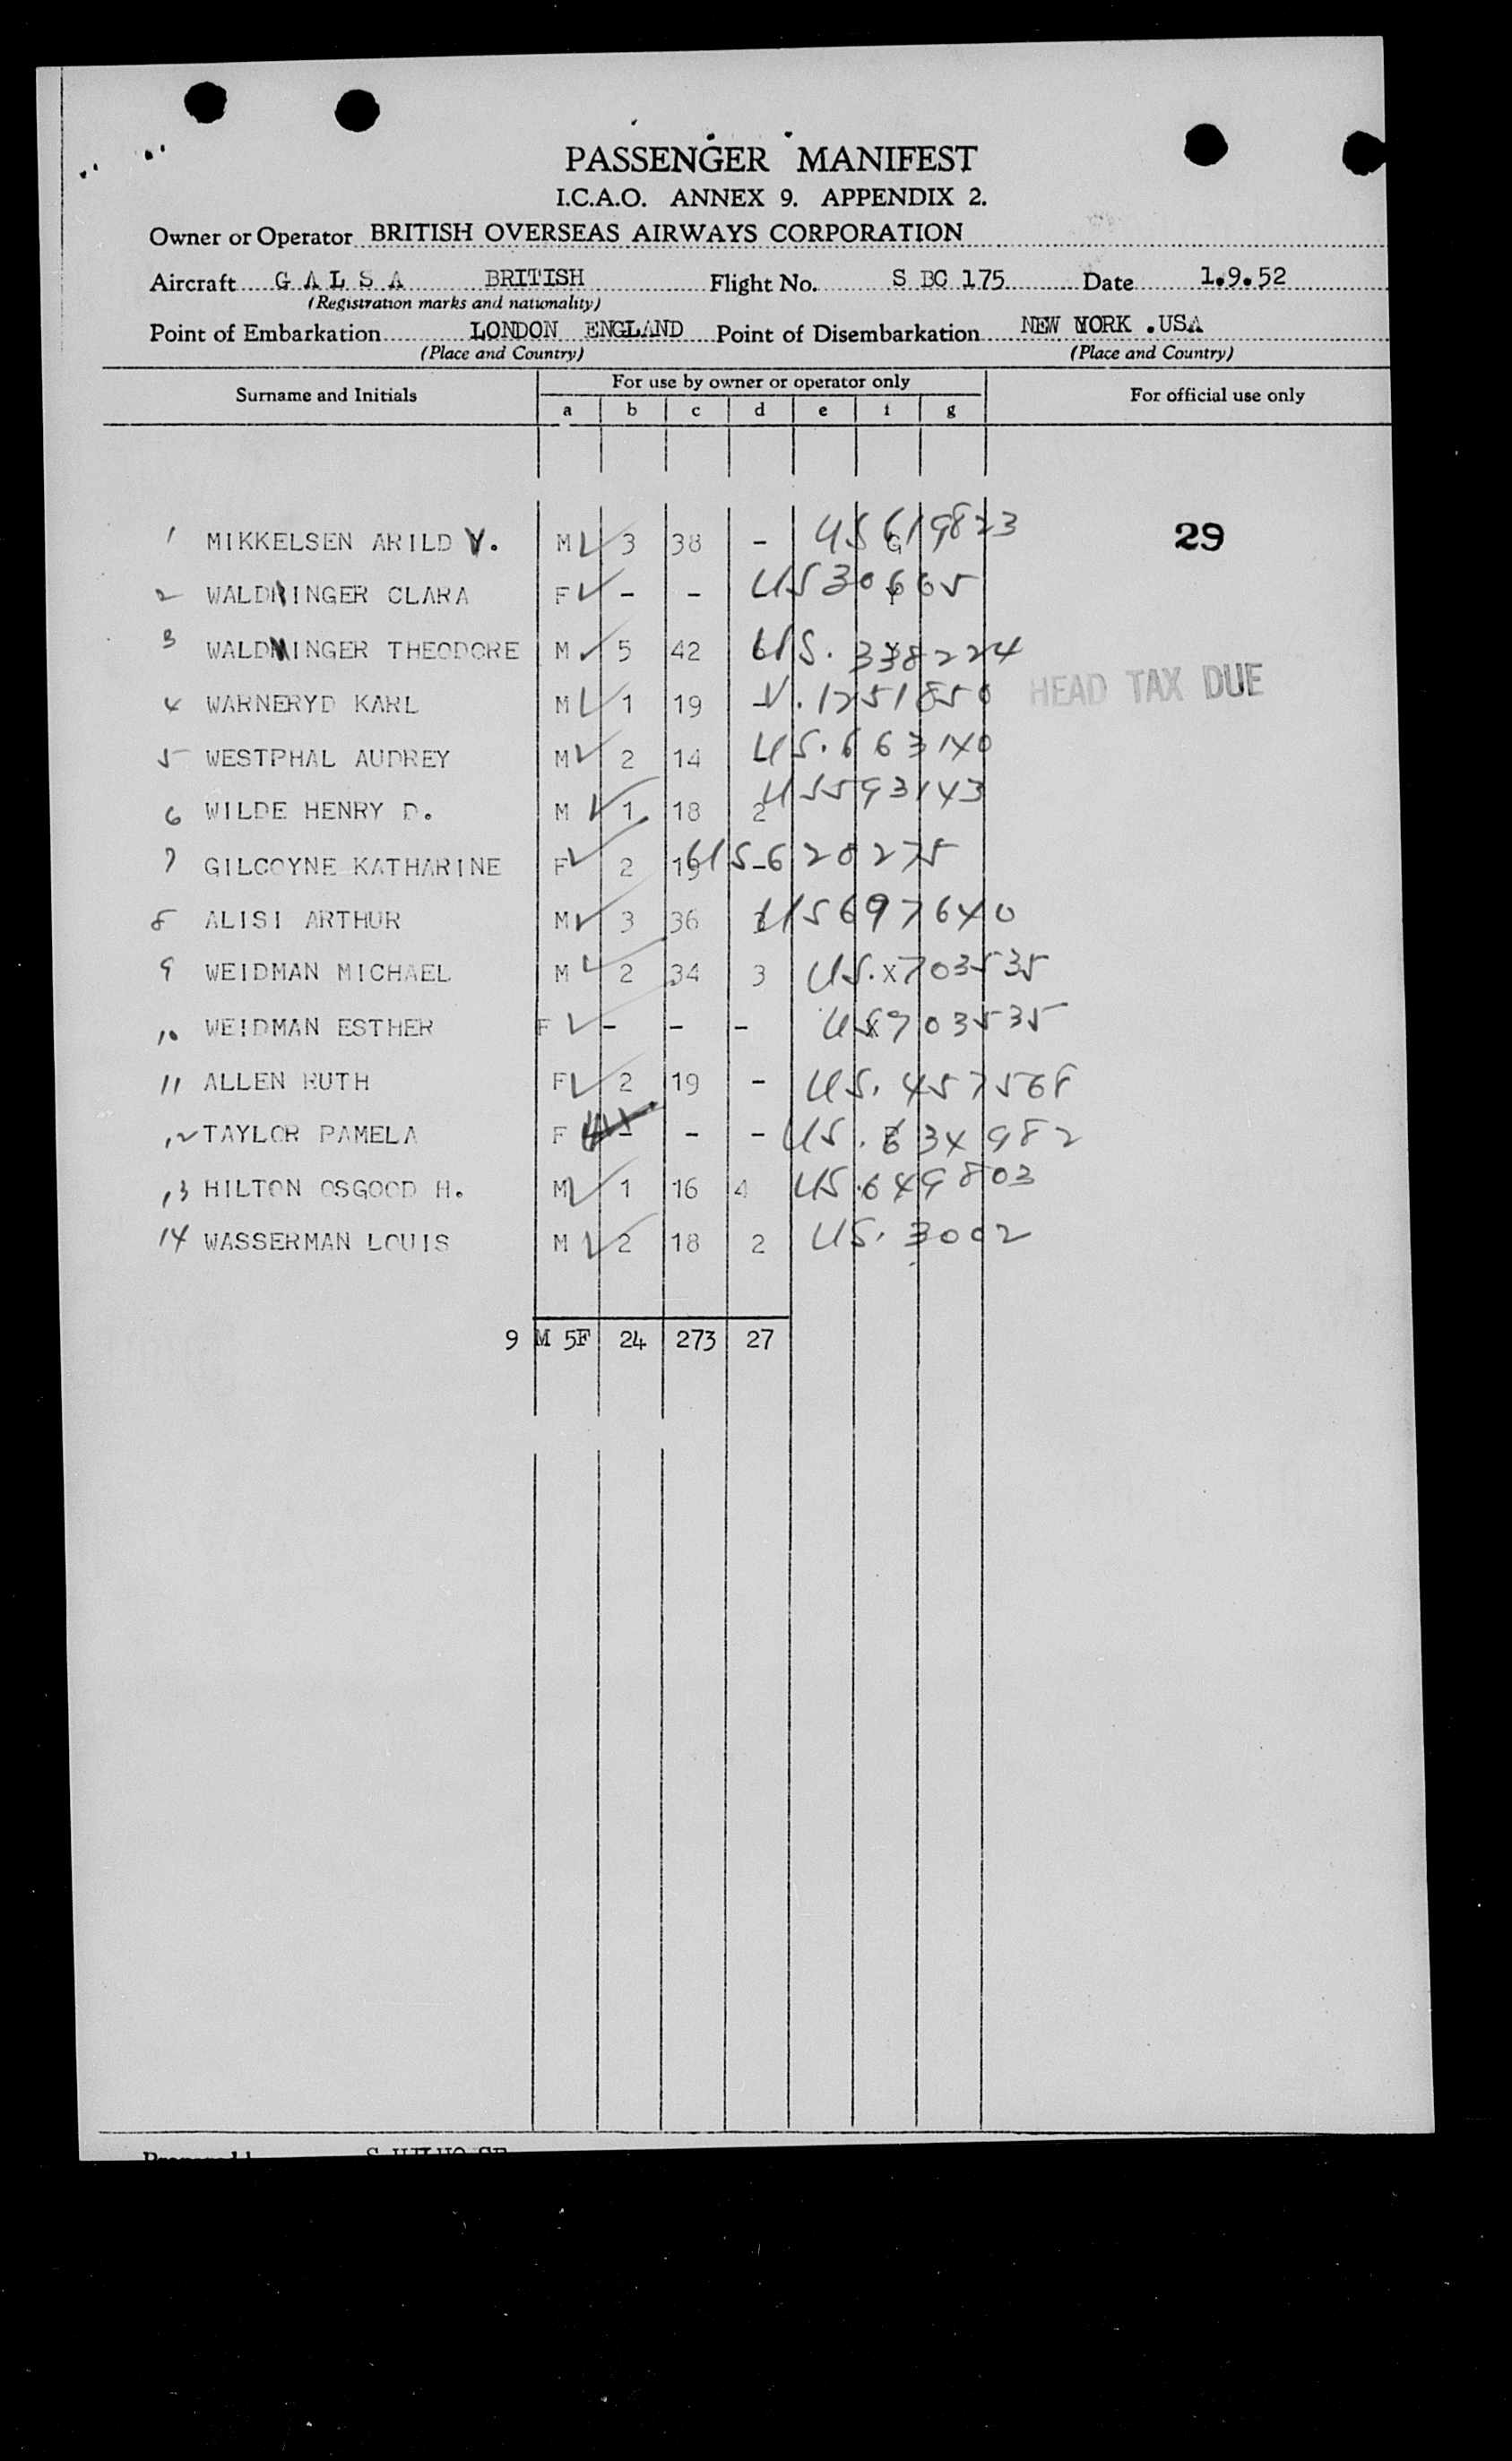 PASSENGER MANIFEST
I.C.A.O. ANNEX 9. APPENDIX 2.
Owner or Operator BRITISH OVERSEAS AIRWAYS CORPORATION
Aircraft G A L S A BRITISH Flight No. S BC 175 Date 1.9.52
(Registration marks and nationality)
Point of Embarkation LONDON ENGLAND Point of Disembarkation NEW YORK .USA
(Place and Country) (Place and Country)
Surname and Initials For use by owner or operator only For official use only
a b c d e f g
1 MIKKELSEN ARILD V. M 3 38 - US 619823 29
2 WALDNINGER CLARA F - - US 30665
3 WALDNINGER THEODORE M 5 42 US. 338224
4 WARNERYD KARL M 1 19 - V.1251850
HEAD TAX DUE
5 WESTPHAL AUDREY M 2 14 US.663140
6 WILDE HENRY D. M 1 18 2 US593143
7 GILCOYNE KATHARINE F 2 19 - US 620275
8 ALISI ARTHUR M 3 36 US697640
9 WEIDMAN MICHAEL M 2 34 3 US.x703535
10 WEIDMAN ESTHER F - - - USx703535
11 ALLEN RUTH F 2 19 - US. 457568
12 TAYLOR PAMELA F - - - US. 634982
13 HILTON OSGOOD H. M 1 16 4 US.649803
14 WASSERMAN LOUIS M 2 18 2 US. 3002
9 M 5F 24 273 27